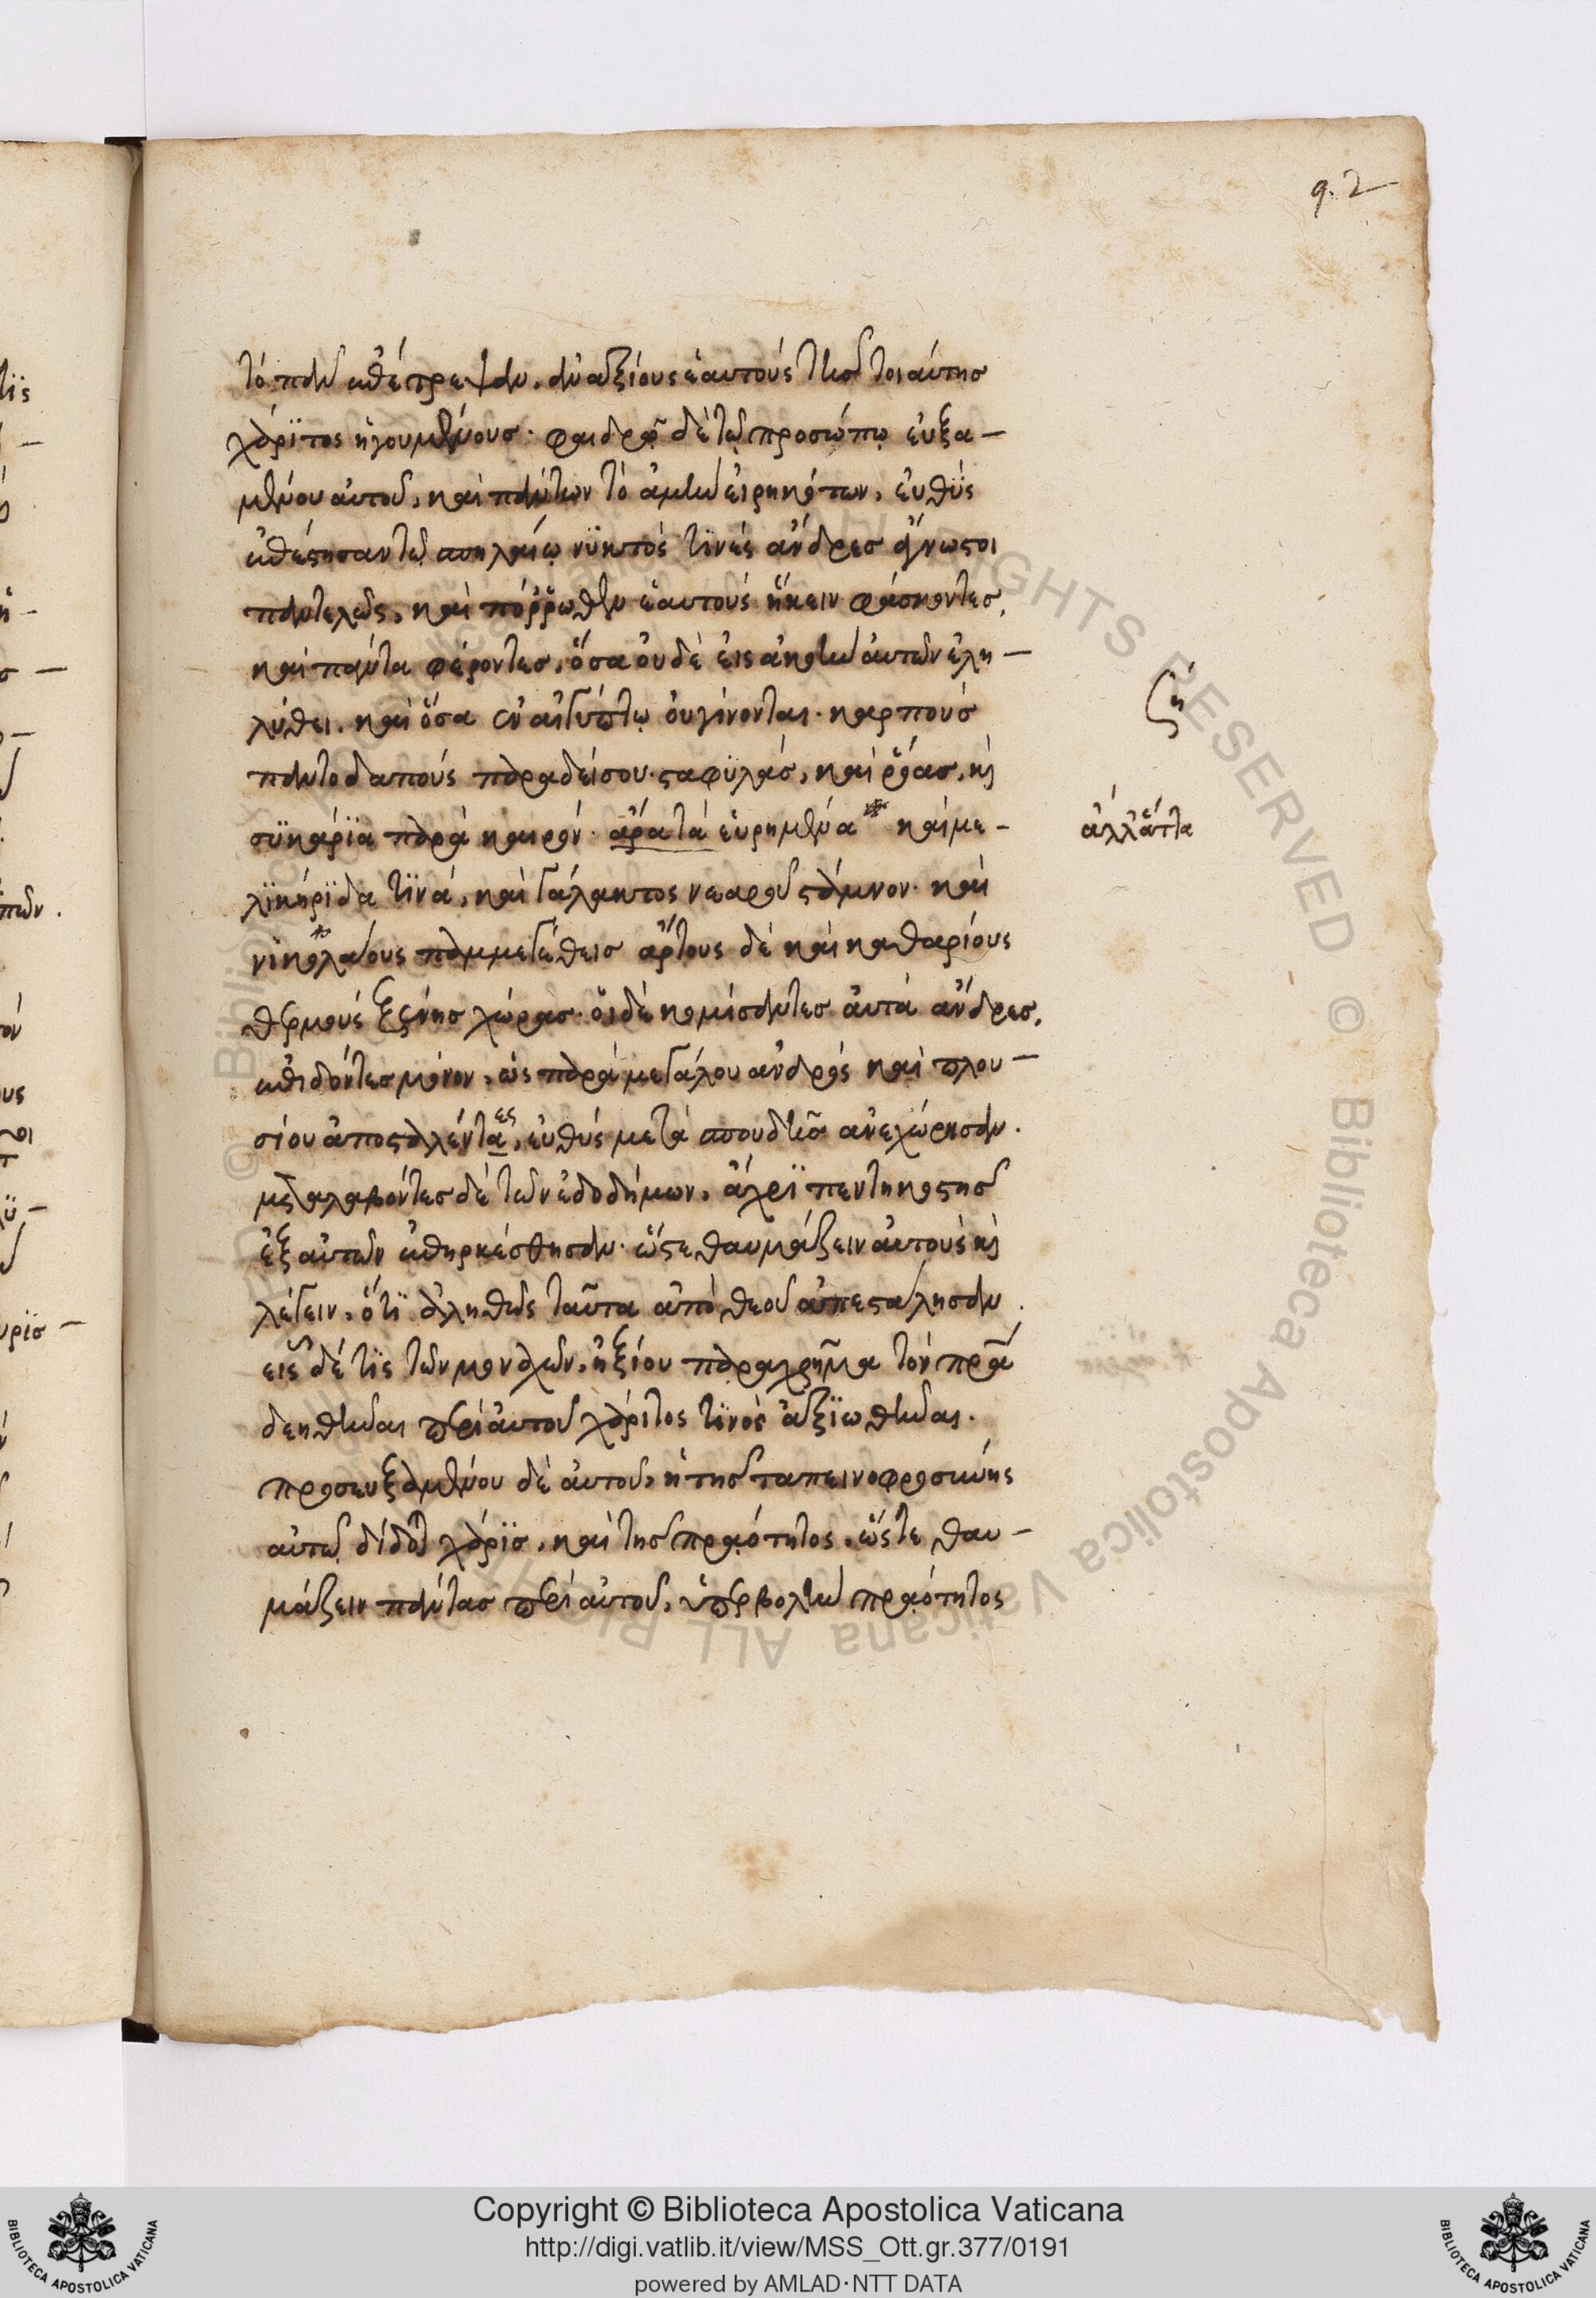 92
τὸ πᾶν ἐπέτρεψαν. ἀναξίους ἑαυτοὺς τῆς τοιαύτης
χάριτος ἡγουμένους. φαιδρῷ δὲ τῷ προσώπῳ εὐξα-
μένου αὐτοῦ, καὶ πάντων τὸ ἀμὴν εἰρηκότων, εὐθὺς
ἐπέστησαν τῷ σπηλαίῳ νϋκτὸς τϊνὲς ἄνδρες ἄγνωστοι
παντελῶς, καὶ πόρρωθεν ἑαυτοὺς ἥκειν φάσκοντες,
καὶ πάντα φέροντες, ὅσα οὐδὲ εἰς ἀκοὴν αὐτῶν ἐλη-
λύθει. καὶ ὅσα ἐν αἰγύπτῳ οὐ γίνονται. καρποὺς
ζή
παντοδαποὺς παραδείσου. σταφϋλάς, καὶ ῥόας, καὶ
σϋκάρϊα παρὰ καιρόν. ἄρατὰ εὑρημένα καὶ με-
ἀλλέττα
λϊκήρϊδα τϊνά, καὶ γάλακτος νεαροῦ στάμνον. καὶ
νϊκολάους παμμεγέθεις ἄρτους δὲ καὶ καθαρίους
θερμοὺς ξένης χώρας. οἱ δὲ κομίσαντες αὐτὰ ἄνδρες,
ἐπιδόντες μόνον, ὡς παρὰ μεγάλου ἀνδρὸς καὶ πλου-
σίου ἀποσταλέντας ες, εὐθὺς μετὰ σπουδῆς ἀνεχώρησαν.
μεταλαβόντες δὲ τῶν ἐδοδήμων, ἄχρϊ πεντηκοστῆς
ἐξ αὐτῶν ἐπηρκέσθησαν. ὥστε θαυμάζειν αὐτοὺς καὶ
λέγειν, ὅτϊ ἀληθῶς ταῦτα ἀπὸ θεοῦ ἀπεστάλησαν.
εἷς δέ τϊς τῶν μοναχῶν, ἠξίου παραχρῆμα τὸν πρᾶ
δεηθῆναι περὶ αὐτοῦ χάριτος τϊνὸς ἀξϊωθῆναι.
προσευξαμένου δὲ αὐτοῦ, ἡ τῆς ταπεινοφροσύνης
αὐτῷ δίδοται χάρϊς, καὶ τῆς πραότητος, ὥστε θαυ-
μάζειν πάντας περὶ αὐτοῦ, ὑπερβολὴν πραότητος
Copyright © Biblioteca Apostolica Vaticana
http://digi.vatlib.it/view/MSS_Ott.gr.377/0191
powered by AMLAD·NTT DATA
BIBLIOTECA APOSTOLICA VATICANA
BIBLIOTECA APOSTOLICA VATICANA